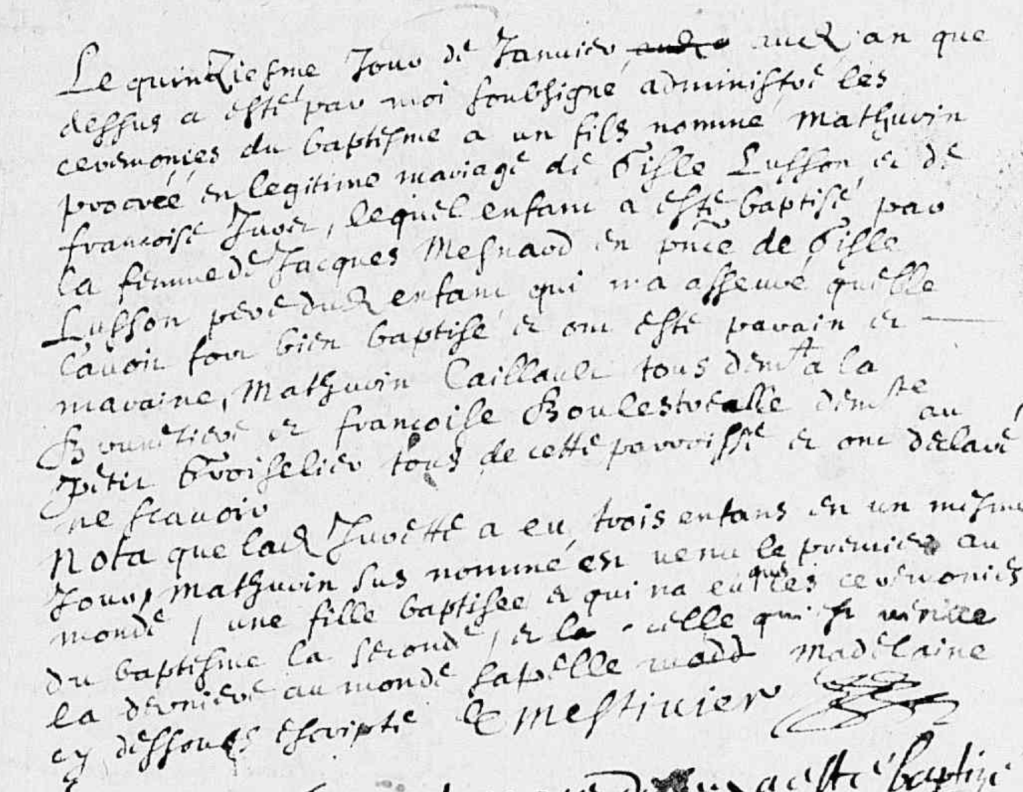 Le quinziesme Jour de Janvier audit an que
dessus a esté par moi soubsigné administré les
ceremonies du baptesme a un fils nommé Mathurin
procreé en legitime mariage de Gisle Lusson et de
francoise Juet, lequel enfant a esté baptisé par
la femme de Jacques Mesnard en pnce de Gisle
Lusson pere dud enfant qui ma asseuré quelle
lavoir fort bien baptisé et ont esté parain et
maraine, Mathurin Caillault tous demt a la
Brunetiere et francoise Boulestreau demte au
petit Groiselier tous de cette parroisse et ont declaré
ne scavoir
Nota que lad Juette a eu trois enfans en un mesme
Jour, Mathurin sus nommé est venu le premier au
monde, une fille baptisee et qui na eu que les ceremonies
du baptesme la seconde, et la celle qui est
la derniere au monde sapelle madelaine
cy dessous escripte Mestivier
a esté baptizé